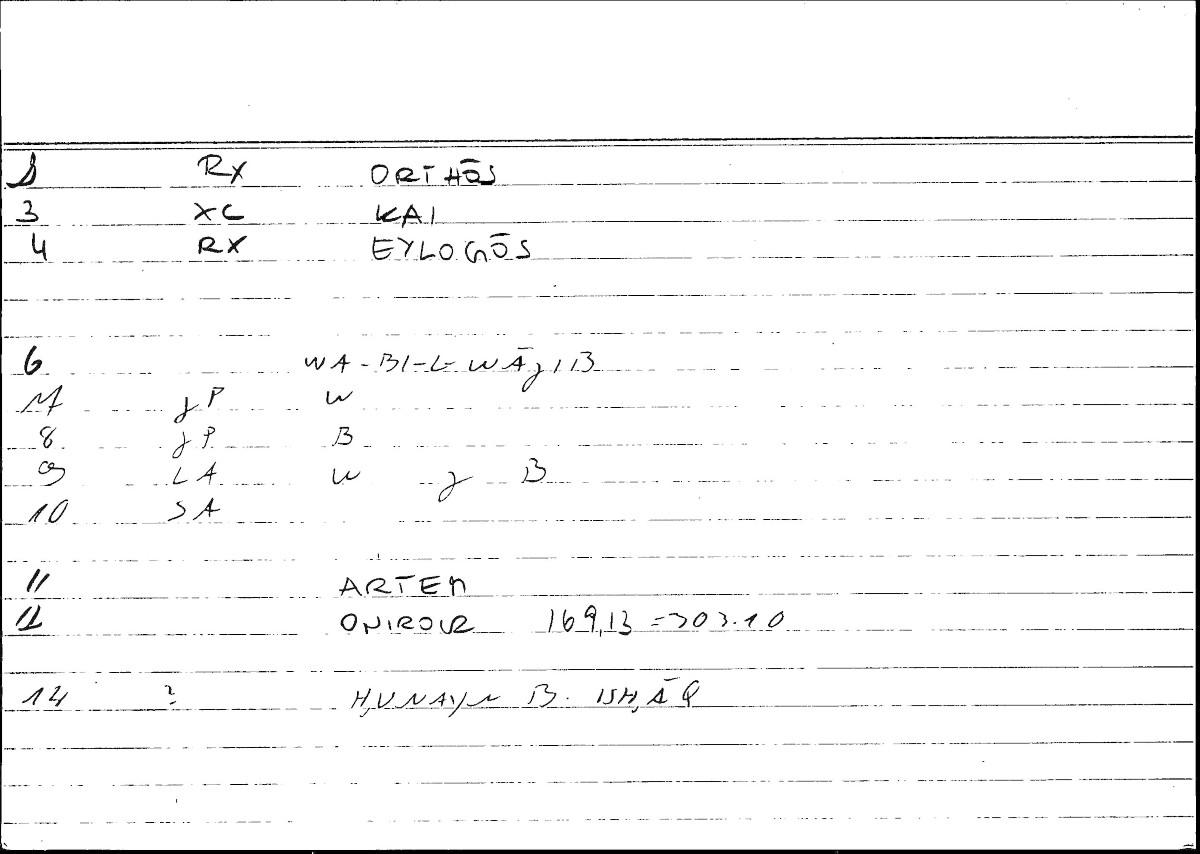 1 RX ORTHŌS
3 XC KAI
4 RX EYLOGŌS
6 WA-BI-L-WĀjIB
7 jP W
8 jP B
9 LA W j B
10 SA
11 ARTEM
12 ONIROCR 169,13 = 303.10
14 ? H,UNAYN B. ISH,ĀQ